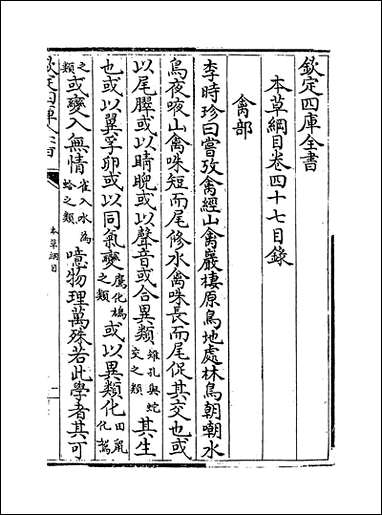 欽定四庫全書
本草綱目卷四十七目錄
禽部
李時珍曰嘗攷禽經山禽巖棲原鳥地處林鳥朝嘲水
鳥夜㖡山禽咮短而尾修水禽咮長而尾促其交也或
以尾臎或以睛睨或以聲音或合異類雉孔與蛇交之類其生
也或以翼孚卵或以同氣變鷹化鳩之類或以異類化田鼠化鴽
之類或變入無情雀入水為蛤之類噫物理萬殊若此學者其可
本草綱目
一